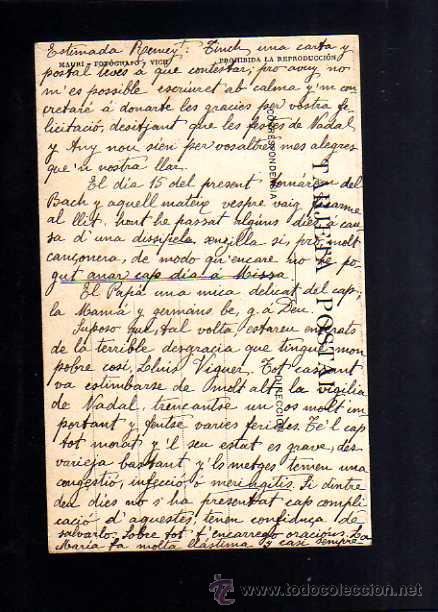 Estimada Remey: Tinch una carta y
MAURI - FOTÓGRAFO - VICH
PROHIBIDA LA REPRODUCCIÓN
postal teves á que contestar; pro avuy no
m'es possible escriuret ab calma y'm con
cretaré á donarte les gracies per vostra fe-
licitació, desitjant que les festes de Nadal
y Any nou sien per vosaltres mes alegres
que'n nostra llar.
El dia 15 del present tornárem del
Bach y aquell mateix vespre vaig ficarme
al llit, hont he passat alguns dies á cau-
sa d'una dissipela senzilla si, pro molt
cançonera, de modo qu'encare no he po-
gut anar cap dia á Missa.
El Papá una mica delicat del cap;
la Mamá y germans be, g. a Deu.
Suposo que, tal volta estareu enterats
de la terrible desgracia que tingué mon
pobre cosí, Lluis Viguer. Tot cassant
va estimbarse de molt alt la vigilia
de Nadal, trencantse un os molt im
portant y fentse varies ferides. Té'l cap
tot morat y'l seu estat es grave, des-
varieja bastant y'ls metges temen una
congestió, infecció o meningitis. Si dintre
deu dies no s'ha presentat cap compli
cació d'aquestes, tenen confiança de
salvarlo. Sobre tot t'encarrego oracions. La
Maria fa molta llástima y casi sempre
CORRESPONDENCIA
TARJETA POSTAL
DIRECCIÓN
todocoleccion.net